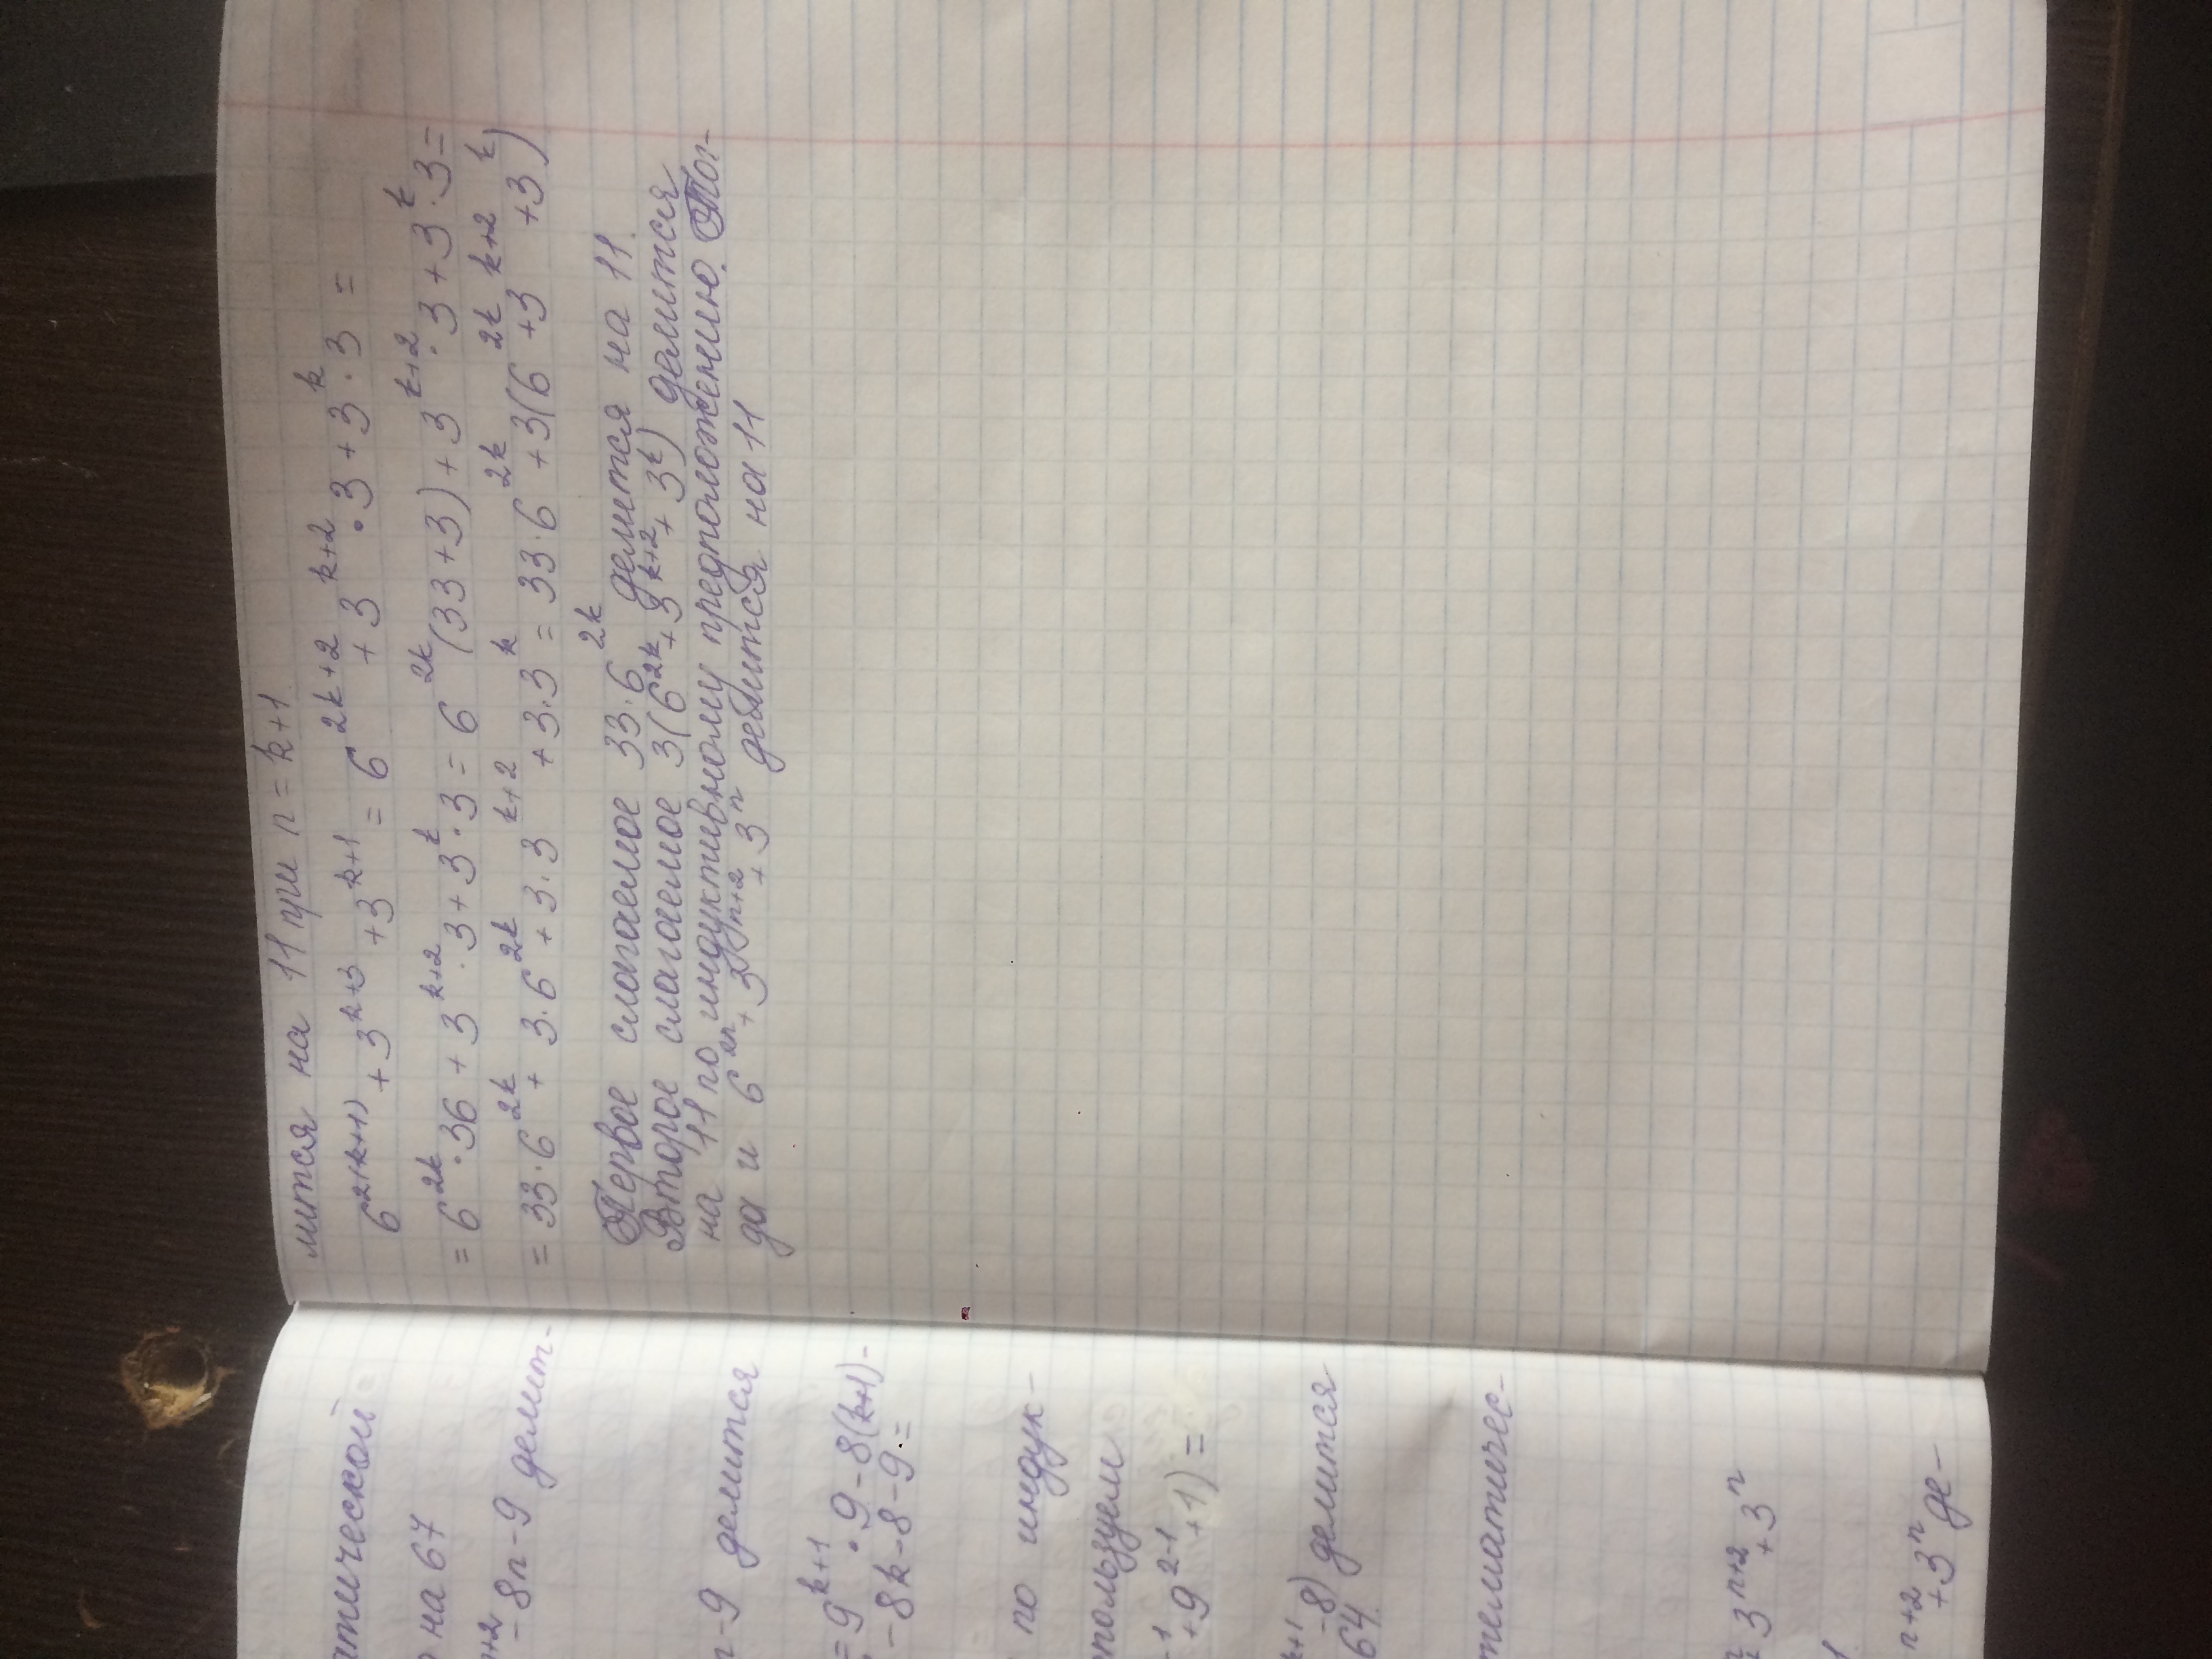 атической
на 67
+2 - 8n - 9 делит-
n - 9 делится
= 9^{k+1} · 9 - 8(k+1) -
- 8k - 8 - 9 =
по индук-
пользуем
+ 9^{2-1} + 1) =
- 8) делится
64.
тематичес-
3^{n+2} + 3^n
n+2 + 3^n де-
лится на 11 при n = k+1
6^{2(k+1)} + 3^{k+3} + 3^{k+1} = 6^{2k+2} + 3^{k+2} · 3 + 3^k · 3 =
= 6^{2k} · 36 + 3^{k+2} · 3 + 3^k · 3 = 6^{2k} (33 + 3) + 3^{k+2} · 3 + 3^k · 3 =
= 33 · 6^{2k} + 3 · 6^{2k} + 3 · 3^{k+2} + 3 · 3^k = 33 · 6^{2k} + 3(6^{2k} + 3^{k+2} + 3^k)
Первое слагаемое 33 · 6^{2k} делится на 11.
Второе слагаемое 3(6^{2k} + 3^{k+2} + 3^k) делится
на 11 по индуктивному предположению. Тог-
да и 6^{2n} + 3^{n+2} + 3^n делится на 11